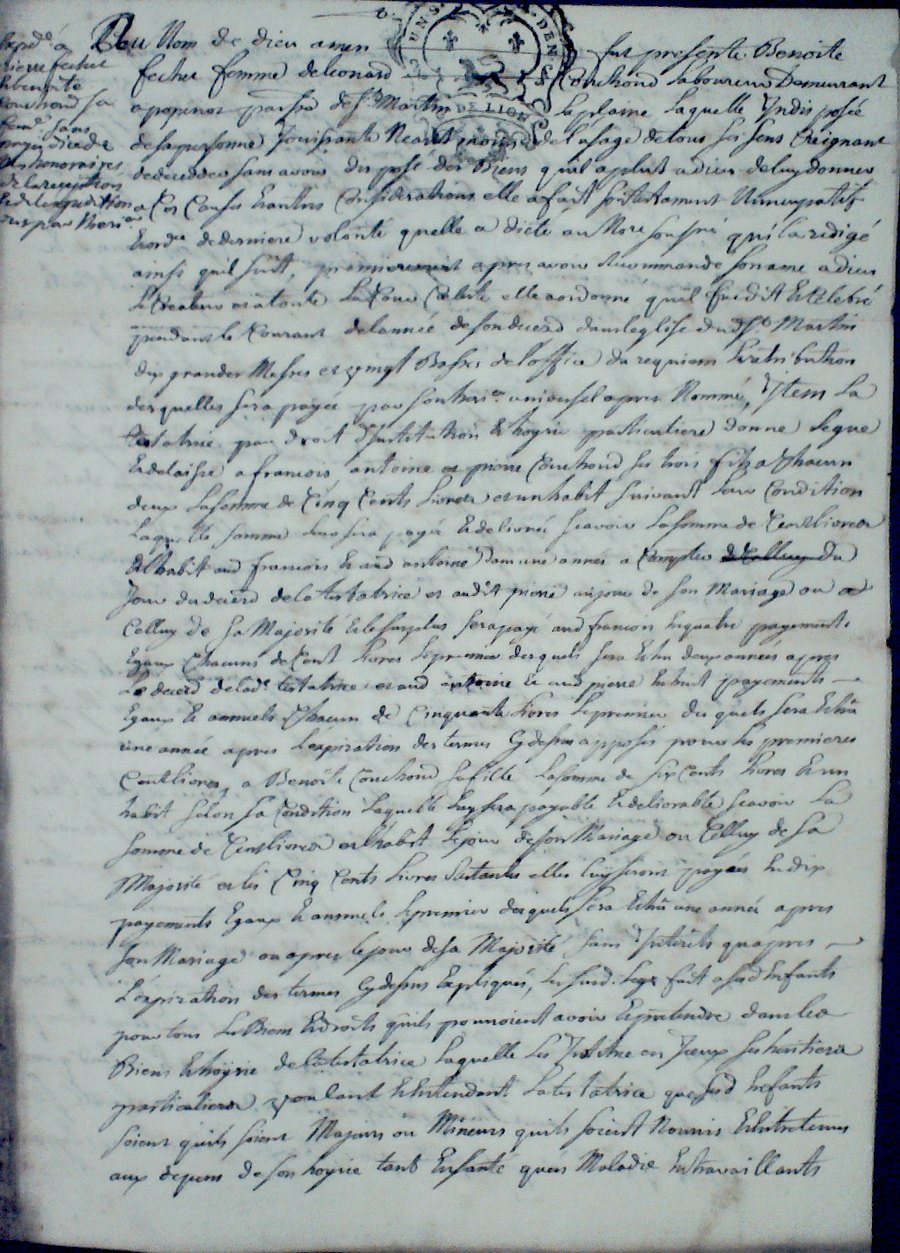 Expd. a
pierre fechet
Benoite
Couchoud sa
feme sans
payer
des honoraires
de la reception
et de l'expedition
dus par l'heri.er
UN S DEN
DE LION
Au Nom de dieu amen fut presente Benoite
fechet femme de leonard Couchoud laboureur Demeurant
a popinot parsse de St Martin La plaine laquelle Indisposée
de sa personne Jouissante Neantmoins de l'usage de tous ses sens Craignant
de decedder sans avoir disposé des Biens qu'il a plut a dieu de luy donner
a Ces Causes Et autres Considerations elle a fait son testament Nuncupatif
Et ordce de derniere volonté quelle a dicté au Nore soussné qui l'a redigé
ainsi quil suit, premierement apres avoir Recommandé son ame a dieu
Le Createur et a toute La Cour Celeste elle a ordonné qu'il fut dit Et Celebré
pendant le Courant de l'année de son decéd dans leglise dud St Martin
dix grandes Messes et vingt Basses de l'office de requiem Retribution
desquelles sera payée par son heri.er universel apres Nommé, Item La
testatrice par droit d'Institution Et hoyrie particuliere donne legue
Et delaisse a francois antoine et pierre Couchoud ses trois fils a Chacun
deux La somme de Cinq Cents Livres et un habit suivant Leur Condition
Laquelle somme Leur sera payée Et delivrée scavoir La somme de Cent livres
Et l'habit aud francois Et aud antoine Dans une année a Compter du
Jour du decéd de la testatrice et audit pierre au jour de son Mariage ou
Celluy de sa Majorité Et le surplus sera payé aud francois En quatre payements
Egaux Chacuns de Cent Livres le premier desquels sera Echu deux années apres
Le decéd de lade testatrice et aud antoine Et aud pierre En huit payements
Egaux Et annuels Chacun de Cinquante Livres le premier desquels sera Echu
une année apres l'expiration des termes Cydessus apposés pour les premieres
Cent livres, a Benoite Couchoud sa fille La somme de six Cents Livres Et un
habit selon sa Condition laquelle luy sera payable Et delivrable scavoir La
somme de Cent livres et l'habit le jour de son Mariage ou Celluy de sa
Majorité et les Cinq Cents Livres Restantes elles luy seront payées En dix
payements Egaux Et annuels le premier desquels sera Echu une année apres
son Mariage ou apres le jour de sa Majorité sans Interets qu'apres
L'expiration des termes Cydessus Expliqués, Les susd. Legs fait a sesd Enfants
pour tous Les Biens Et droits qu'ils pourroient avoir Et pretendre dans les
Biens Et hoyrie de la testatrice laquelle Les Institue en Iceux ses heritiers
particuliers voulant Et Entendant La testatrice que sesd Enfants
soient qu'ils soient Majeurs ou Mineurs qu'ils soient Nourris Et Entretenus
aux depens de son hoyrie tant En santé qu'en Maladie En travaillants